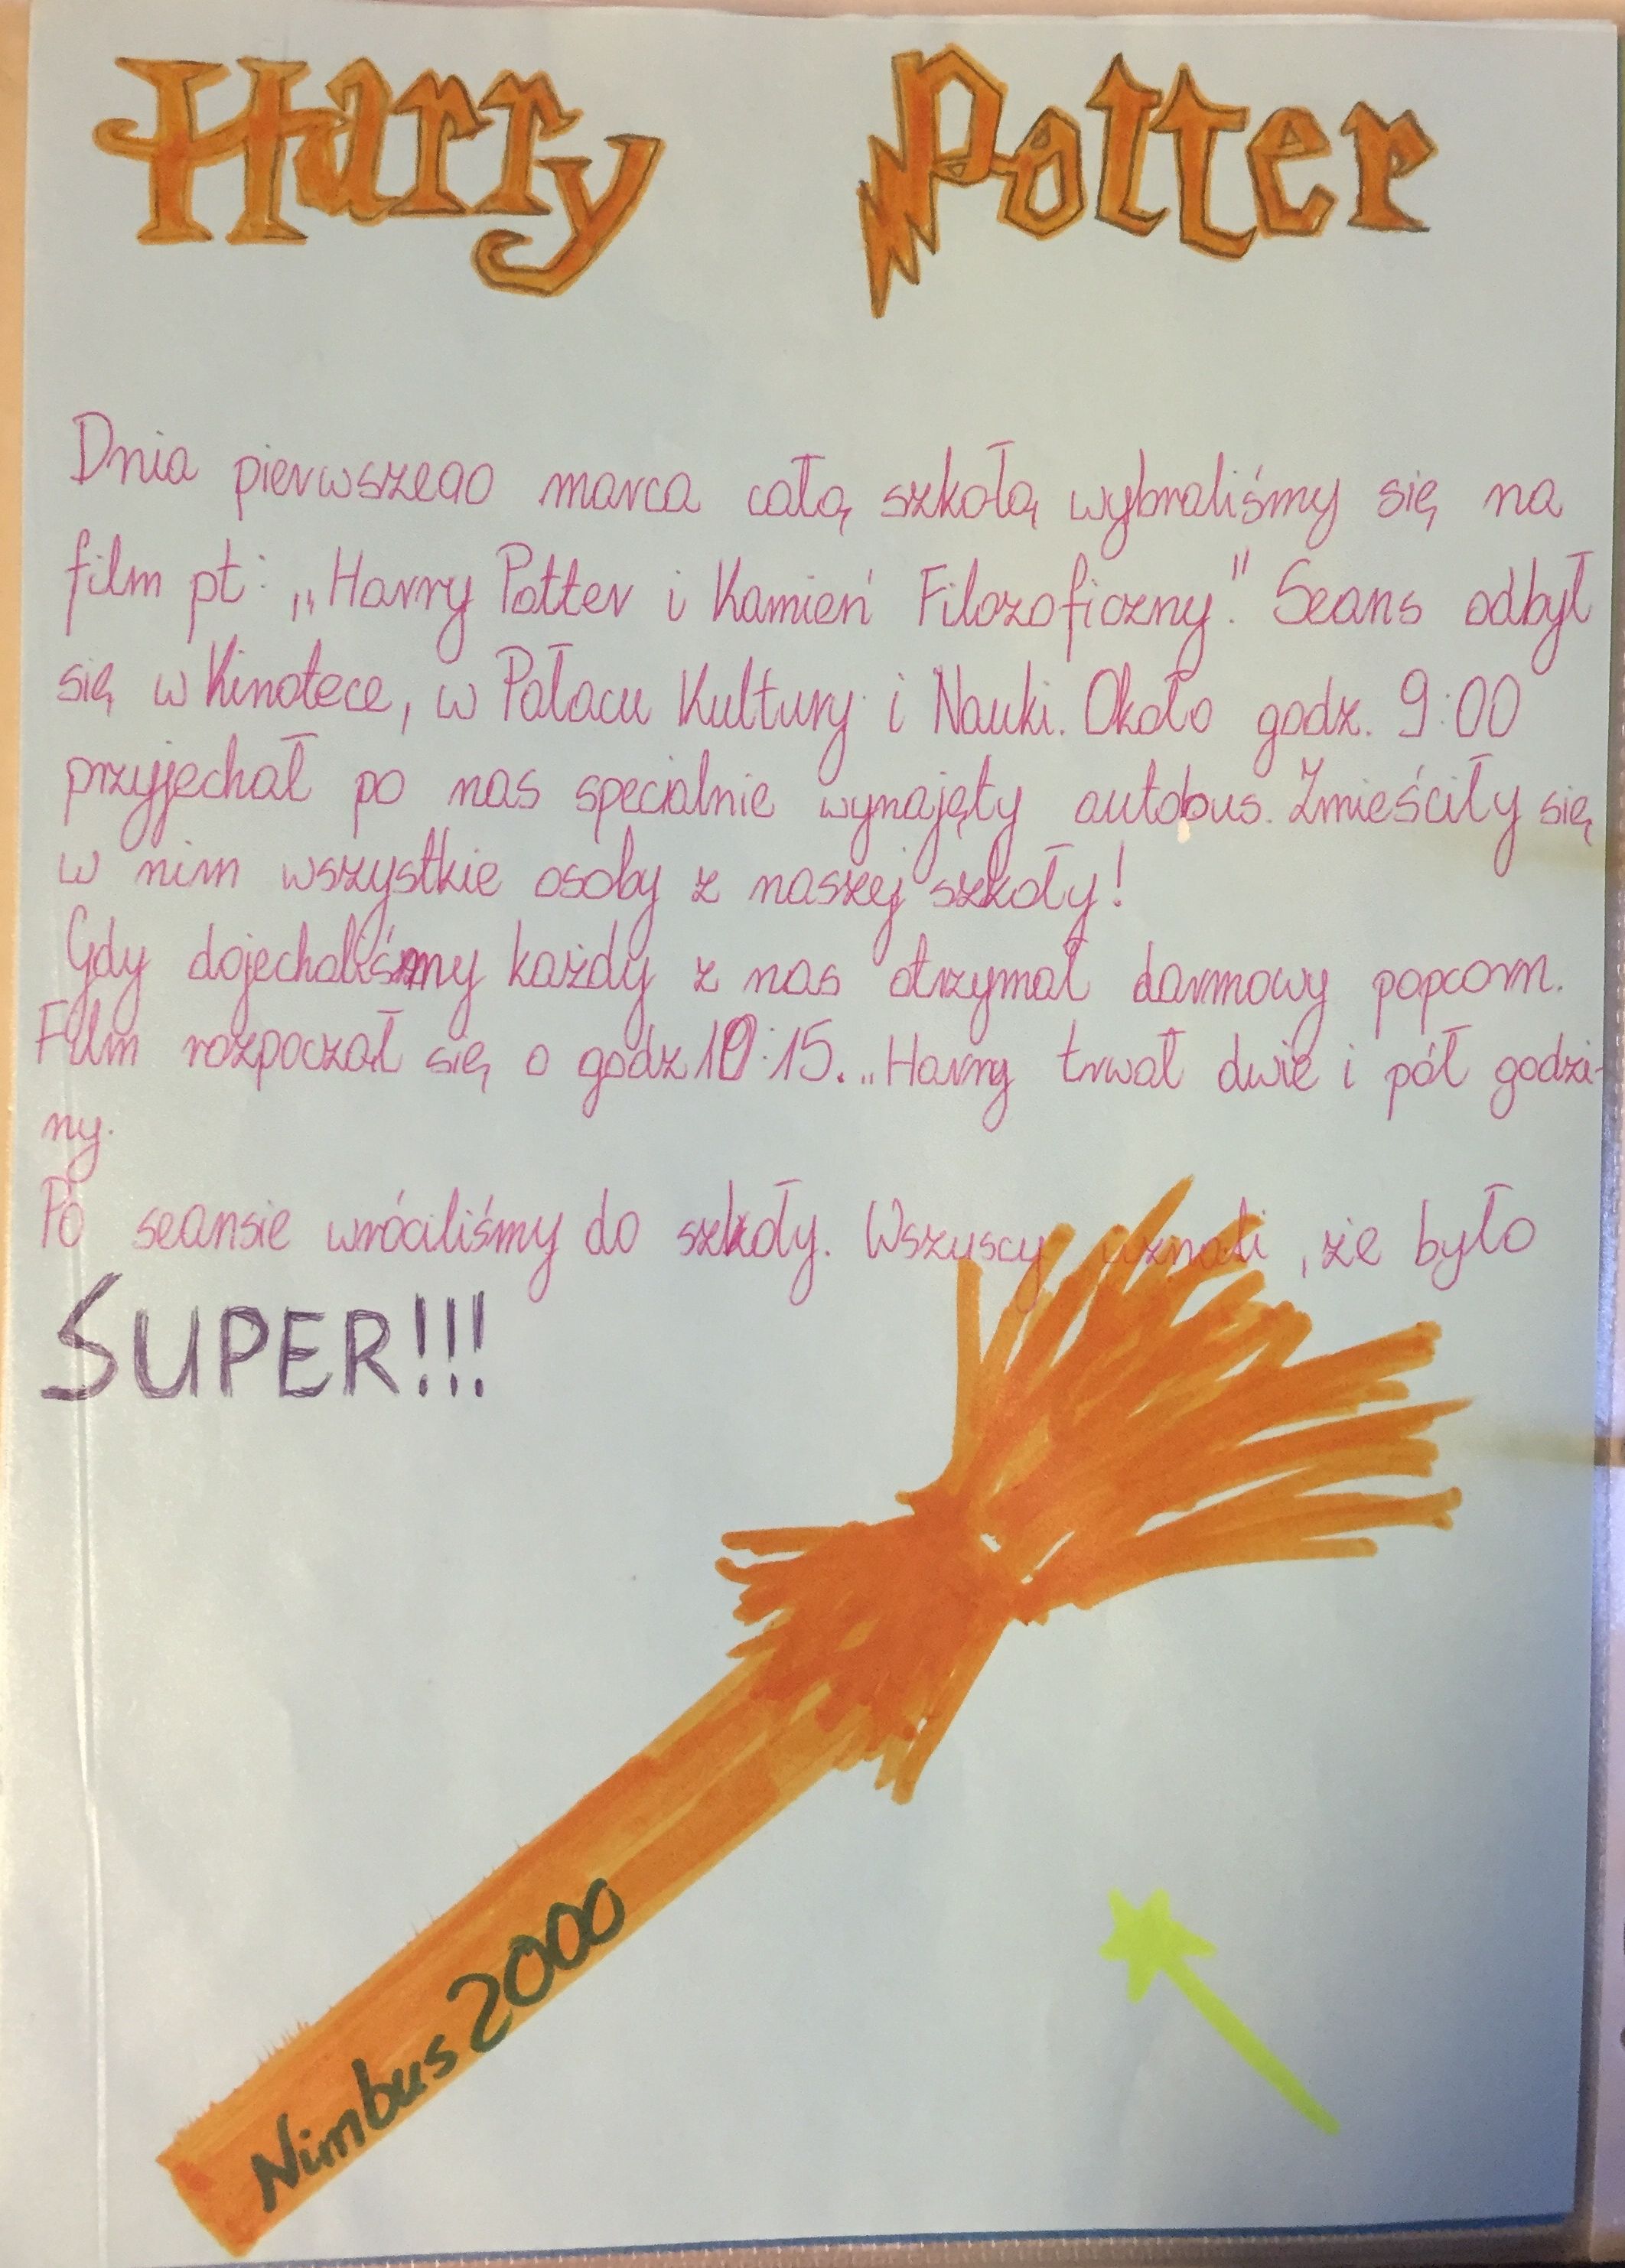 Harry Potter
Dnia pierwszego marca całą szkołą wybraliśmy się na
film pt: „Harry Potter i Kamień Filozoficzny." Seans odbył
się w Kinotece, w Pałacu Kultury i Nauki. Około godz. 9:00
przyjechał po nas specialnie wynajęty autobus. Zmieściły się
w nim wszystkie osoby z naszej szkoły!
Gdy dojechaliśmy każdy z nas otrzymał darmowy popcorn.
Film rozpoczął się o godz 10:15. „Harry trwał dwie i pół godzi-
ny.
Po seansie wróciliśmy do szkoły. Wszyscy uznali, że było
SUPER!!!
Nimbus 2000